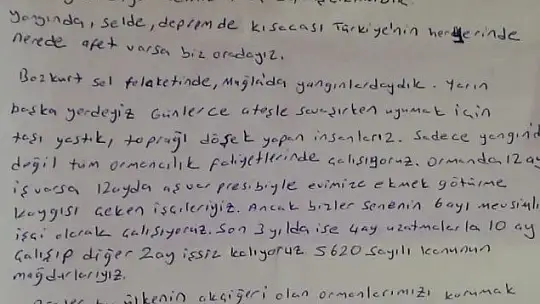 yangında, selde, depremde kısacası Türkiye'nin heryerinde
nerede afet varsa biz oradayız.
Bozkurt sel felaketinde, Muğla'da yangınlardaydık. Yarın
başka yerdeyiz Günlerce ateşle savaşırken uyumak için
taşı yastık, toprağı döşek yapan insanlarız. Sadece yangında
değil tüm ormancılık faliyetlerinde çalışıyoruz. Ormanda 12 ay
iş varsa 12 ayda aş var presibiyle evimize ekmek götürme
kaygısı çeken işçileriyiz. Ancak bizler senenin 6 ayı mevsimlik
işçi olarak çalışıyoruz. Son 3 yılda ise 4 ay uzatmalarla 10 ay
çalışıp diğer 2 ay işsiz kalıyoruz 5620 sayılı kanunun
mağdurlarıyız.
ülkenin akciğeri olan ormanlarımızı korumak